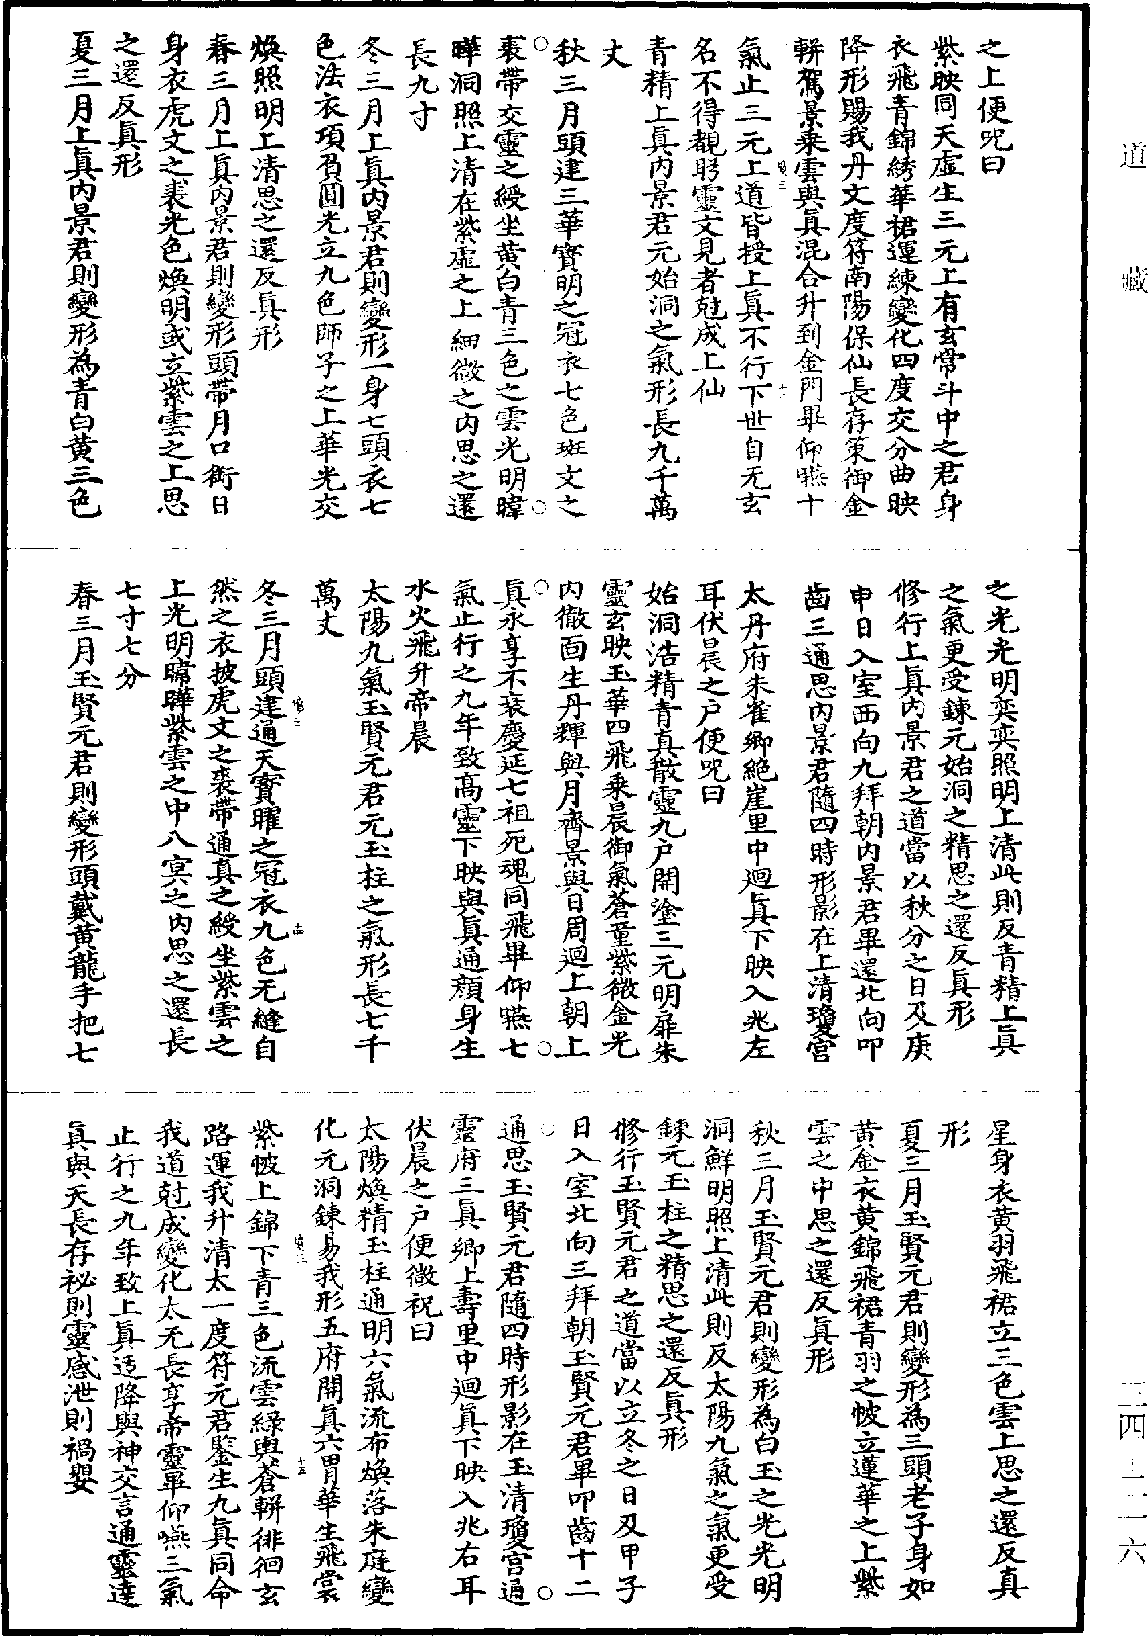 道藏
之上便咒曰
紫映同天虛生三元上有玄常斗中之君身
衣飛青錦綉華裙運練變化四度交分曲映
降形賜我丹文度符南陽保仙長存策御金
軿駕景乘雲與真混合升到金門畢仰嚥十
氣止三元上道皆授上真不行下世自无玄
名不得覩眄靈文見者尅成上仙
青精上真內景君元始洞之氣形長九千萬
丈
秋三月頭建三華寶明之冠衣七色斑文之
裘帶交靈之綬坐黃白青三色之雲光明暐
曄洞照上清在紫虛之上細微之內思之還
長九寸
冬三月上真內景君則變形一身七頭衣七
色法衣項負圓光立九色師子之上華光交
煥照明上清思之還反真形
春三月上真內景君則變形頭帶月口銜日
身衣虎文之裘光色煥明或立紫雲之上思
之還反真形
夏三月上真內景君則變形為青白黃三色
之光光明奕奕照明上清此則反青精上真
之氣更受鍊元始洞之精思之還反真形
修行上真內景君之道當以秋分之日及庚
申日入室西向九拜朝內景君畢還北向叩
齒三通思內景君隨四時形影在上清瓊宮
太丹府朱雀鄉絕崖里中迴真下映入兆左
耳伏晨之戶便咒曰
始洞浩精青真散靈九戶開塗三元明扉朱
靈玄映玉華四飛乘晨御氣蒼童紫微金光
內徹面生丹輝與月齊景與日周迴上朝上
真永享不衰慶延七祖死魂同飛畢仰嚥七
氣止行之九年致高靈下映與真通顏身生
水火飛升帝晨
太陽九氣玉賢元君元玉柱之氣形長七千
萬丈
冬三月頭建通天寶曜之冠衣九色无縫自
然之衣披虎文之裘帶通真之綬坐紫雲之
上光明暐曄紫雲之中八冥之內思之還長
七寸七分
春三月玉賢元君則變形頭戴黃龍手把七
星身衣黃羽飛裙立三色雲上思之還反真
形
夏三月玉賢元君則變形為三頭老子身如
黃金衣黃錦飛裙青羽之帔立蓮華之上紫
雲之中思之還反真形
秋三月玉賢元君則變形為白玉之光光明
洞鮮明照上清此則反太陽九氣之氣更受
鍊元玉柱之精思之還反真形
修行玉賢元君之道當以立冬之日及甲子
日入室北向三拜朝玉賢元君畢叩齒十二
通思玉賢元君隨四時形影在玉清瓊宮通
靈府三真鄉上壽里中迴真下映入兆右耳
伏晨之戶便微祝曰
太陽煥精玉柱通明六氣流布煥落朱庭變
化元洞鍊易我形五府開真六胃華生飛裳
紫帔上錦下青三色流雲綠輿蒼軿徘徊玄
路運我升清太一度符元君鑒生九真同命
我道尅成變化太无長享帝靈畢仰嚥三氣
止行之九年致上真迂降與神交言通靈達
真與天長存祕則靈感泄則禍嬰